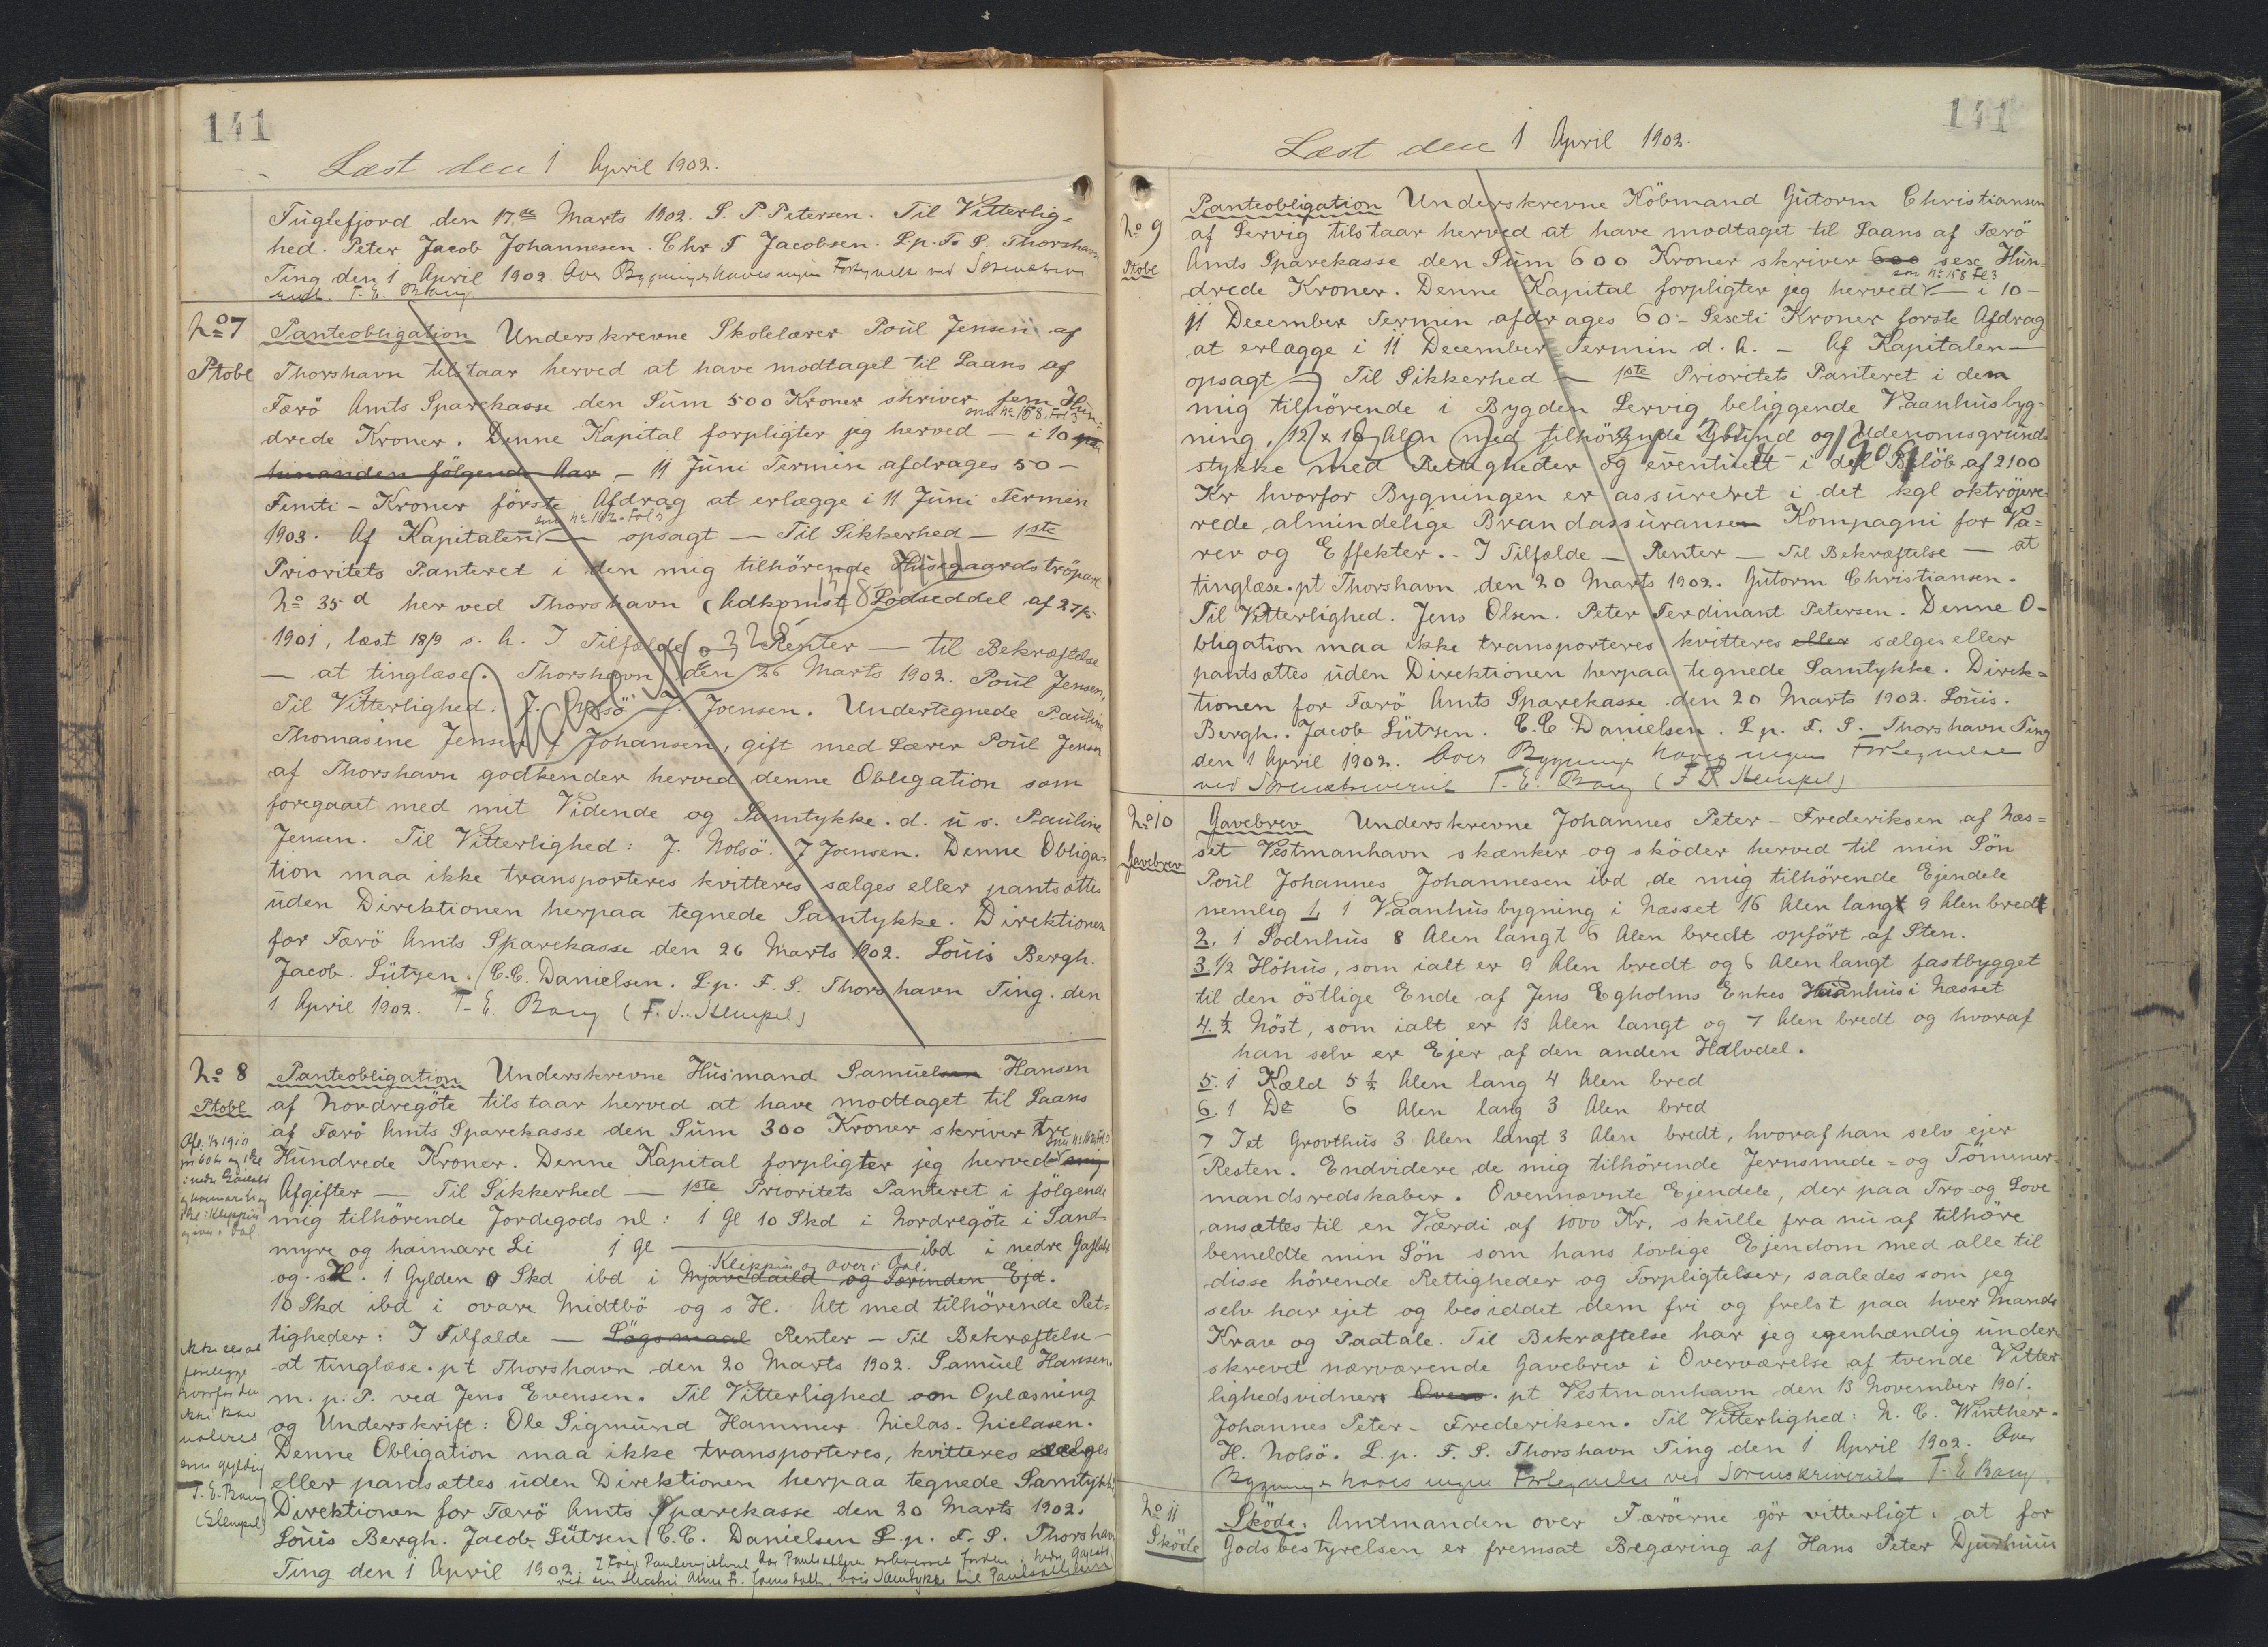 141
Læst den 1 April 1902.
Fuglefjord den 17de Marts 1902. S. P. Petersen. Til Vitterlig=
hed. Peter Jacob Johannesen. Chr F Jacobsen. L.p. F. S. Thorshavn
Ting den 1 April 1902. Over Bygninger haves ingen Fortegnelse ved Sorenskrive
riet. T. E. Bang
No 7
Ptobl
Panteobligation Underskrevne Skolelærer Poul Jensen af
Thorshavn tilstaar herved at have modtaget til Laans af
Færö Amts Sparekasse den Sum 500 Kroner skriver fem Hun=
som No 158 Fol 3
drede Kroner. Denne Kapital forpligter jeg herved — i 10 paa
hinanden følgende Aar - 11 Juni Termin afdrages 50 -
Femti - Kroner förste Afdrag at erlægge i 11 Juni Termin
som No 162. Fol 3
1903. Af Kapitalen — opsagt — Til Sikkerhed — 1ste
Prioritets Panteret i den mig tilhörende Husegaards tröpart
No 35d her ved Thorshavn (Adkomst Lodseddel af 27/5
1901, læst 18/9 s. A. I Tilfælde — Renter — til Bekræftelse
— at tinglæse. Thorshavn den 26 Marts 1902. Poul Jensen,
Til Vitterlighed: J. Nolsö J. Joensen. Undertegnede Pauline
Thomasine Jensen f. Johansen, gift med Lærer Poul Jensen
af Thorshavn godkender herved denne Obligation som
foregaaet med mit Vidende og Samtykke. d. u s. Pauline
Jensen. Til Vitterlighed: J. Nolsö. J Joensen. Denne Obliga=
tion maa ikke transporteres kvitteres sælges eller pantsættes
uden Direktionen herpaa tegnede Samtykke. Direktionen
for Færö Amts Sparekasse den 26 Marts 1902. Louis Bergh.
Jacob. Lützen. C.C. Danielsen. L.p. F. S. Thorshavn Ting. den
1 April 1902. T. E. Bang (F. D. Hempel)
No 8
Ptobl
Panteobligation Underskrevne Husmand Samuelsen Hansen
af Nordregöte tilstaar herved at have modtaget til Laans
af Færö Amts Sparekasse den Sum 300 Kroner skriver tre
Hundrede Kroner. Denne Kapital forpligter jeg herved mig
Afgifter — Til Sikkerhed — 1ste Prioritets Panteret i følgende
mig tilhörende Jordegods nl: 1 Gl 10 Skd i Nordregöte i Sand
myre og haimare Li 1 Gl — ibd i nedre
Klippin og over i
og s H. 1 Gylden 0 Skd ibd i og Særinden Ejd.
10 Skd ibd i ovare Midtbö og s H. Alt med tilhörende Ret=
tigheder: I Tilfælde — Lögsmaal Renter - Til Bekræftelse -
at tinglæse. pt Thorshavn den 20 Marts 1902. Samuel Hansen
m. p. P. ved Jens Evensen. Til Vitterlighed om Oplæsning
og Underskrift: Ole Sigmund Hammer. Nielas. Nielasen.
Denne Obligation maa ikke transporteres, kvitteres sælges
eller pantsættes uden Direktionen herpaa tegnede Samtykke
Direktionen for Færö Amts Sparekasse den 20 Marts 1902.
Louis Bergh. Jacob Lützen C.C. Danielsen L.p. F. S. Thorshavn
Ting den 1 April 1902
T. E. Bang
(Hempel)
141
Læst den 1 April 1902.
No 9
Ptobl
Panteobligation Underskrevne Köbmand Gutorm Christiansen
af Lervig tilstaar herved at have modtaget til Laans af Færö
Amts Sparekasse den Sum 600 Kroner skriver 600 sex Hun=
som No 158 Fol 3
drede Kroner. Denne Kapital forpligter jeg herved — i 10 -
11 December Termin afdrages 60 - Sexti Kroner forste Afdrag
at erlægge i 11 December Termin d. A. - Af Kapitalen —
opsagt — Til Sikkerhed — 1ste Prioritets Panteret i dem
mig tilhörende i Bygden Lervig beliggende Vaanhusbyg=
ning. 12 x 10 Alen med tilhörende Grund og Udenomsgrund
stykke med Rettigheder og eventuelt i det Belöb af 2100
Kr hvorfor Bygningen er assureret i det kgl oktröjere=
rede almindelige Brandassuransen Kompagni for Va=
rer og Effekter. - I Tilfælde — Renter — Til Bekræftelse — at
tinglæse. pt Thorshavn den 20 Marts 1902. Gutorm Christiansen.
Til Vitterlighed. Jens Olsen. Peter Ferdinant Petersen. Denne O-
bligation maa ikke transporteres kvitteres eller sælges eller
pantsættes uden Direktionen herpaa tegnede Samtykke. Direk=
tionen for Færö Amts Sparekasse den 20 Marts 1902. Louis.
Bergh. Jacob Lützen. C.C Danielsen. L.p. F. S. Thorshavn Ting
den 1 April 1902. Over Bygninge haves ingen Fortegnelse
ved Sorenskriveriet T. E. Bang (F D Hempel)
No 10
Gavebrev
Gavebrev Underskrevne Johannes Peter - Frederiksen af Næs=
set Vestmanhavn skænker og sköder herved til min Sön
Poul Johannes Johannesen ibd de mig tilhörende Ejendele
nemlig 1, 1 Vaanhusbygning i Næsset 16 Alen langt 9 Alen bredt
2. 1 Sodnhus 8 Alen langt 6 Alen bredt opfört af Sten.
3. 1/2 Höhus, som ialt er 9 Alen bredt og 6 Alen langt fastbygget
til den östlige Ende af Jens Egholms Enkes Vaanhus i Næsset
4. 1/2 Nöst, som ialt er 13 Alen langt og 7 Alen bredt og hvoraf
han selv er Ejer af den anden Halvdel.
5. 1 Kæld 5 1/2 Alen lang 4 Alen bred
6. 1 Do 6 Alen lang 3 Alen bred
7 I et Grovthus 3 Alen langt 3 Alen bredt, hvoraf han selv ejer
Resten. Endvidere de mig tilhörende Jernsmede= og Tömmer=
mandsredskaber. Ovennævnte Ejendele, der paa Tro= og Love
ansættes til en Værdi af 1000 Kr. skulle fra nu af tilhöre
bemeldte min Sön som hans lovlige Ejendom med alle til
disse hörende Rettigheder og Forpligtelser, saaledes som jeg
selv har ejet og besiddet dem fri og frelst paa hver Mands
Krav og Paatale. Til Bekræftelse har jeg egenhændig under=
skrevet nærværende Gavebrev i Overværelse af tvende Vitter
lighedsvidner. pt Vestmanhavn den 13 November 1901.
Johannes Peter - Frederiksen. Til Vitterlighed: N. C. Winther.
H. Nolsö. L.p. F. S. Thorshavn Ting den 1 April 1902. Over
Bygninger haves ingen Fortegnelse ved Sorenskriveriet T. E Bang
No 11
Sköde
Sköde. Amtmanden over Færöerne gör vitterligt: at for
Godsbestyrelsen er fremsat Begæring af Hans Peter Djurhuus